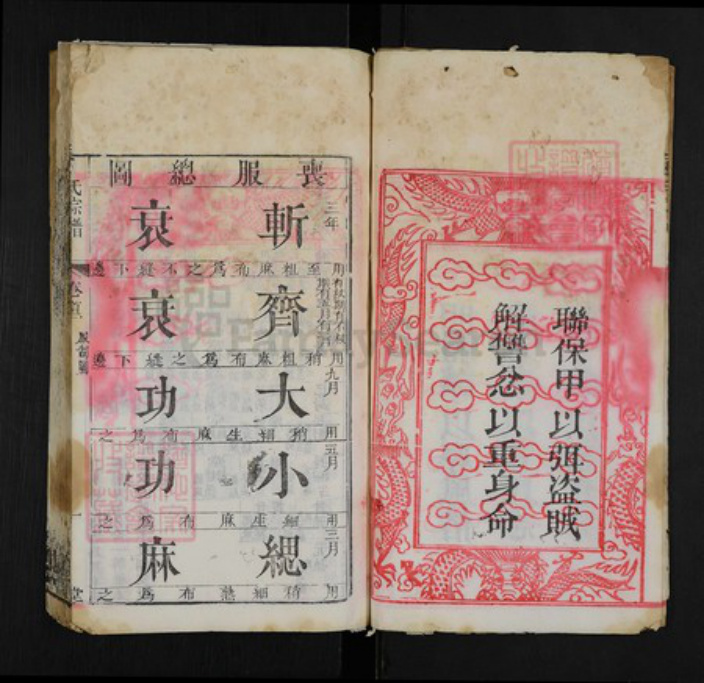 聯保甲以弭盜賊
解讐忿以重身命
喪服總圖
斬衰
三年
用至粗麻布爲之不縫下邊
齊衰
用稍粗麻布爲之縫下邊
大功
九月
用稍粗生麻布爲之
小功
五月
用稍細生麻布爲之
緦麻
三月
用稍細熟布爲之
氏宗譜
卷首